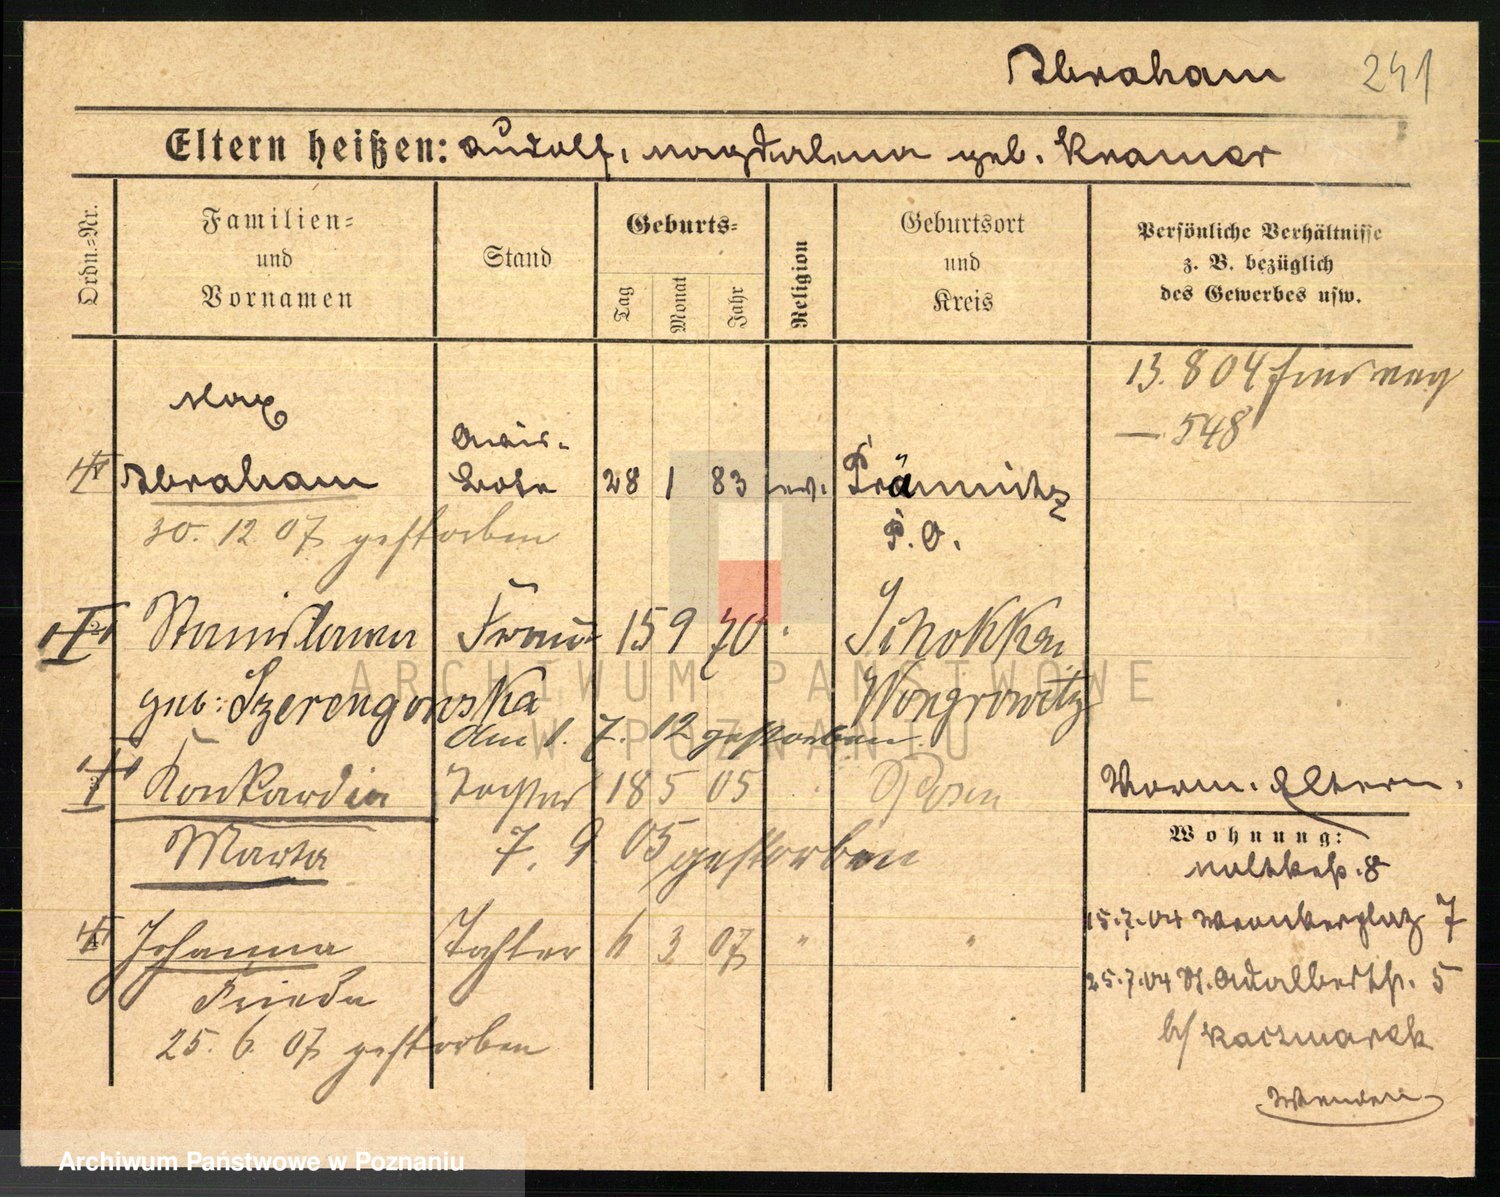 Abraham 241
Eltern heißen: Rudolf, Magdalena geb. Kramer
Ordn.=Nr.
Familien=
und
Vornamen
Stand
Geburts=
Tag
Monat
Jahr
Religion
Geburtsort
und
Kreis
Persönliche Verhältnisse
z. B. bezüglich
des Gewerbes usw.
13. 804
— 548
Max
Abraham 28 1 83 ev. Prämnitz
P. O.
30. 12 07 gestorben
Stanislawa Frau 15 9 70 Schokken
geb: Szerengowska Wongrowitz
am 1. 7. 12 gestorben.
Konkordia Tochter 18 5 05 Posen
Marta 7. 9 05 gestorben
Johanna Tochter 6 3 07 " "
Frieda
25. 6. 07 gestorben
Vorm. Eltern.
Wohnung:
Moltkestr. 8
15.7.04 Wronkerplatz 7
25.7.04 St. Adalbertstr. 5
b/ Kaczmarek
Wenden
ARCHIWUM PAŃSTWOWE
W POZNANIU
Archiwum Państwowe w Poznaniu